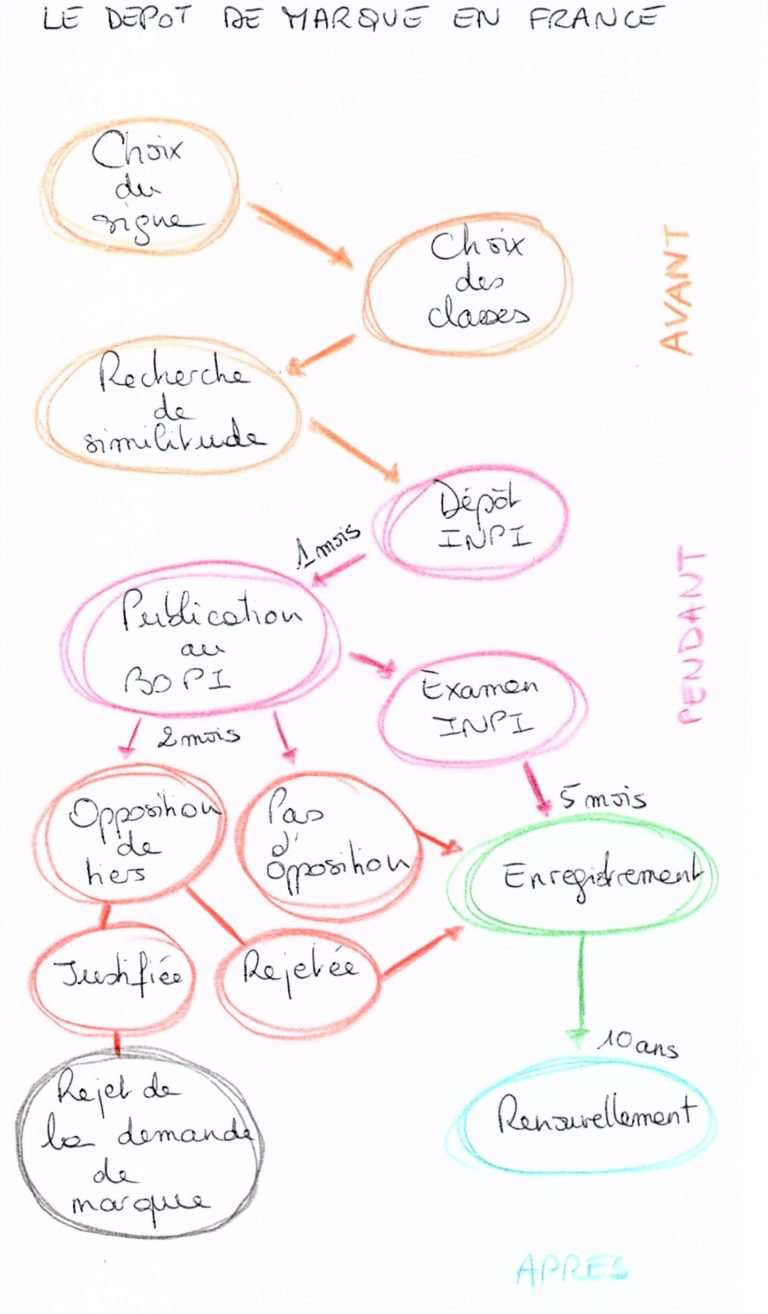 LE DEPOT DE MARQUE EN FRANCE
Choix
du
signe
Choix
des
classes
AVANT
Recherche
de
similitude
Dépôt
INPI
1 mois
PENDANT
Publication
au
BOPI
Examen
INPI
2 mois
5 mois
Opposition
de
tiers
Pas
d'
opposition
Enregistrement
Justifiée
Rejetée
10 ans
Rejet de
la demande
de
marque
Renouvellement
APRES